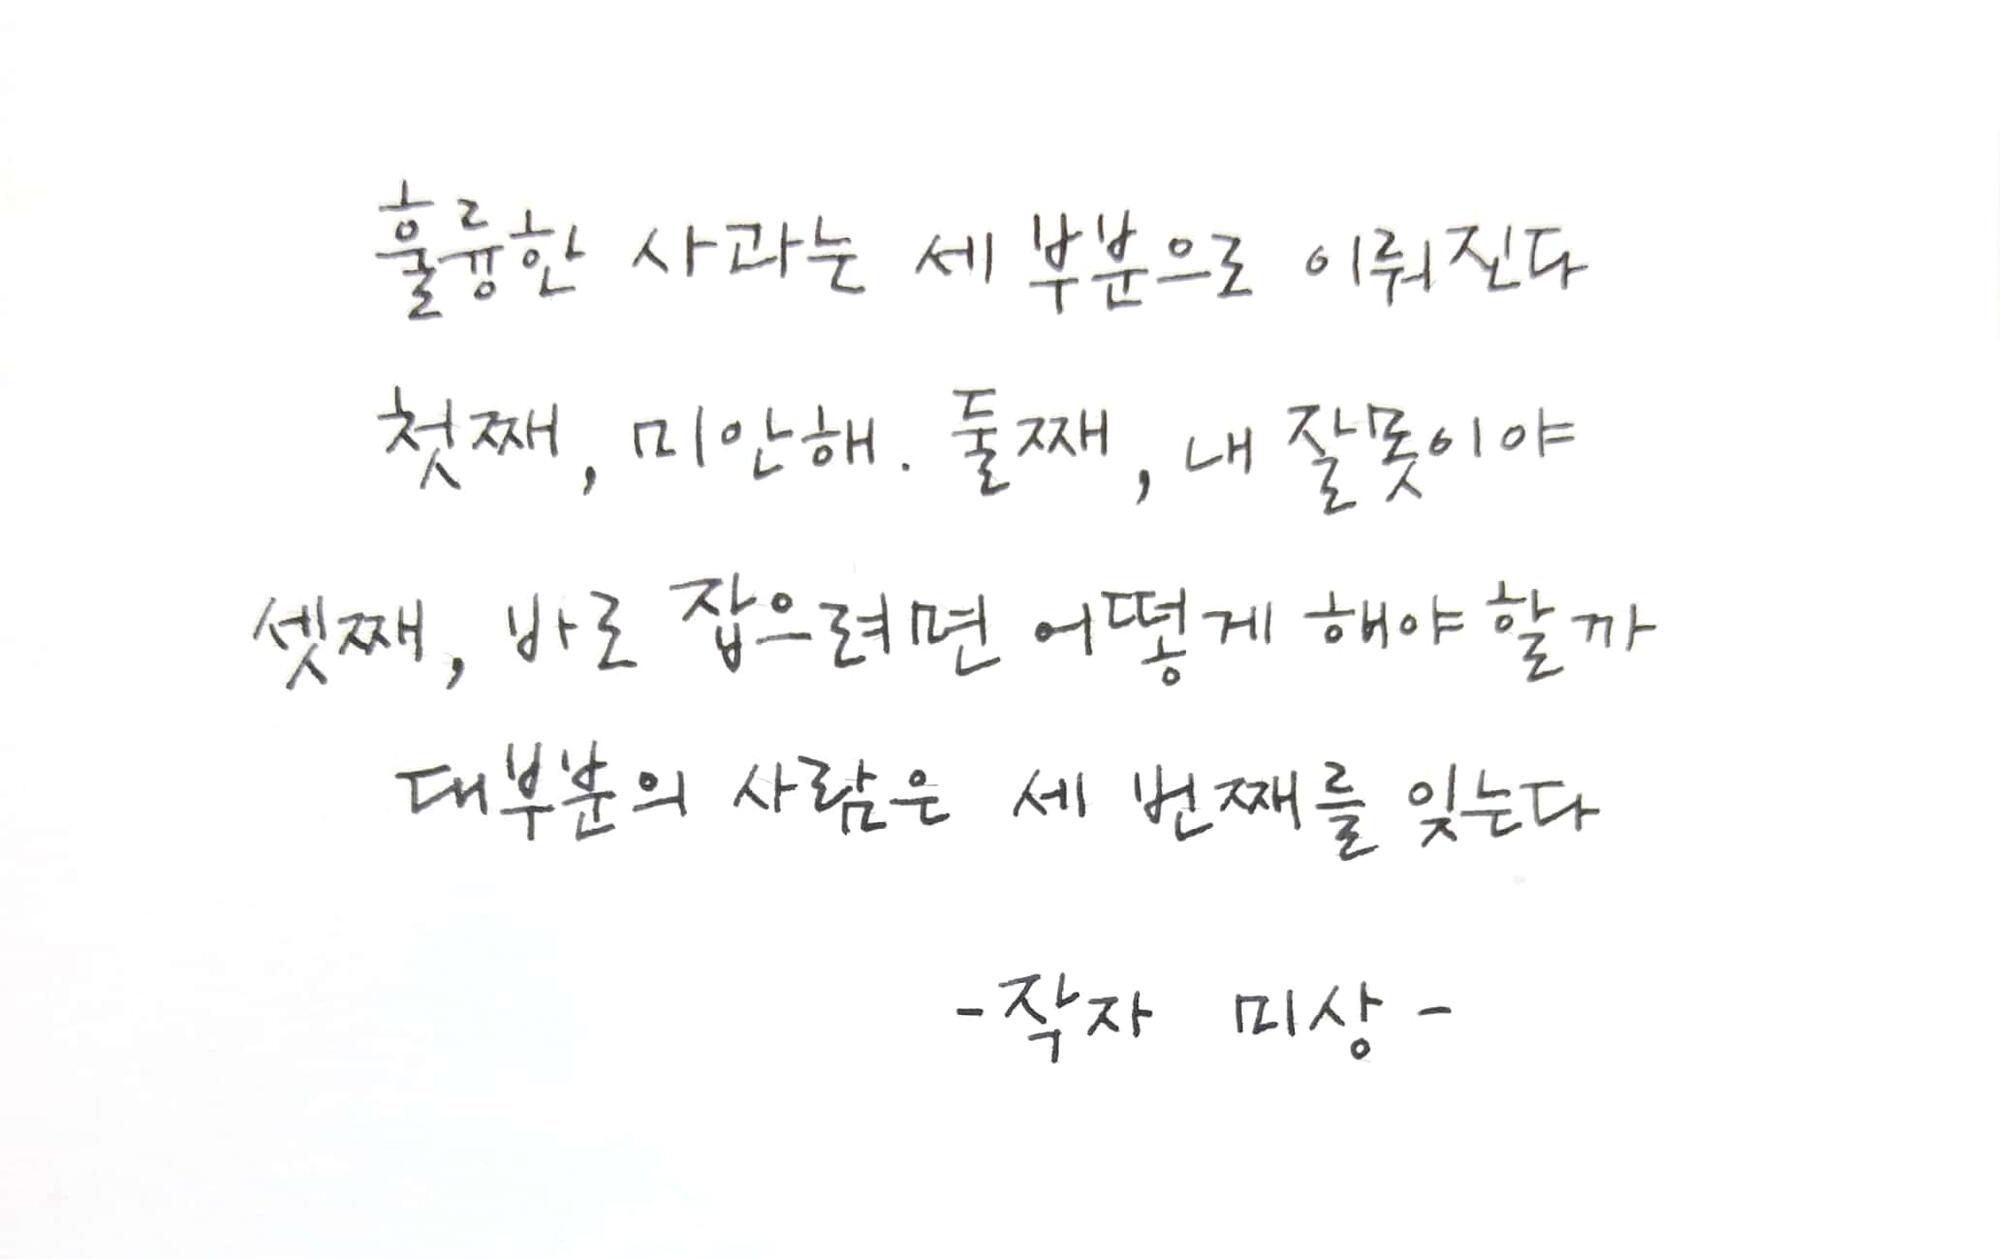 훌륭한 사과는 세 부분으로 이뤄진다
첫째, 미안해. 둘째, 내 잘못이야
셋째, 바로 잡으려면 어떻게 해야 할까
대부분의 사람은 세 번째를 잊는다
-작자 미상-